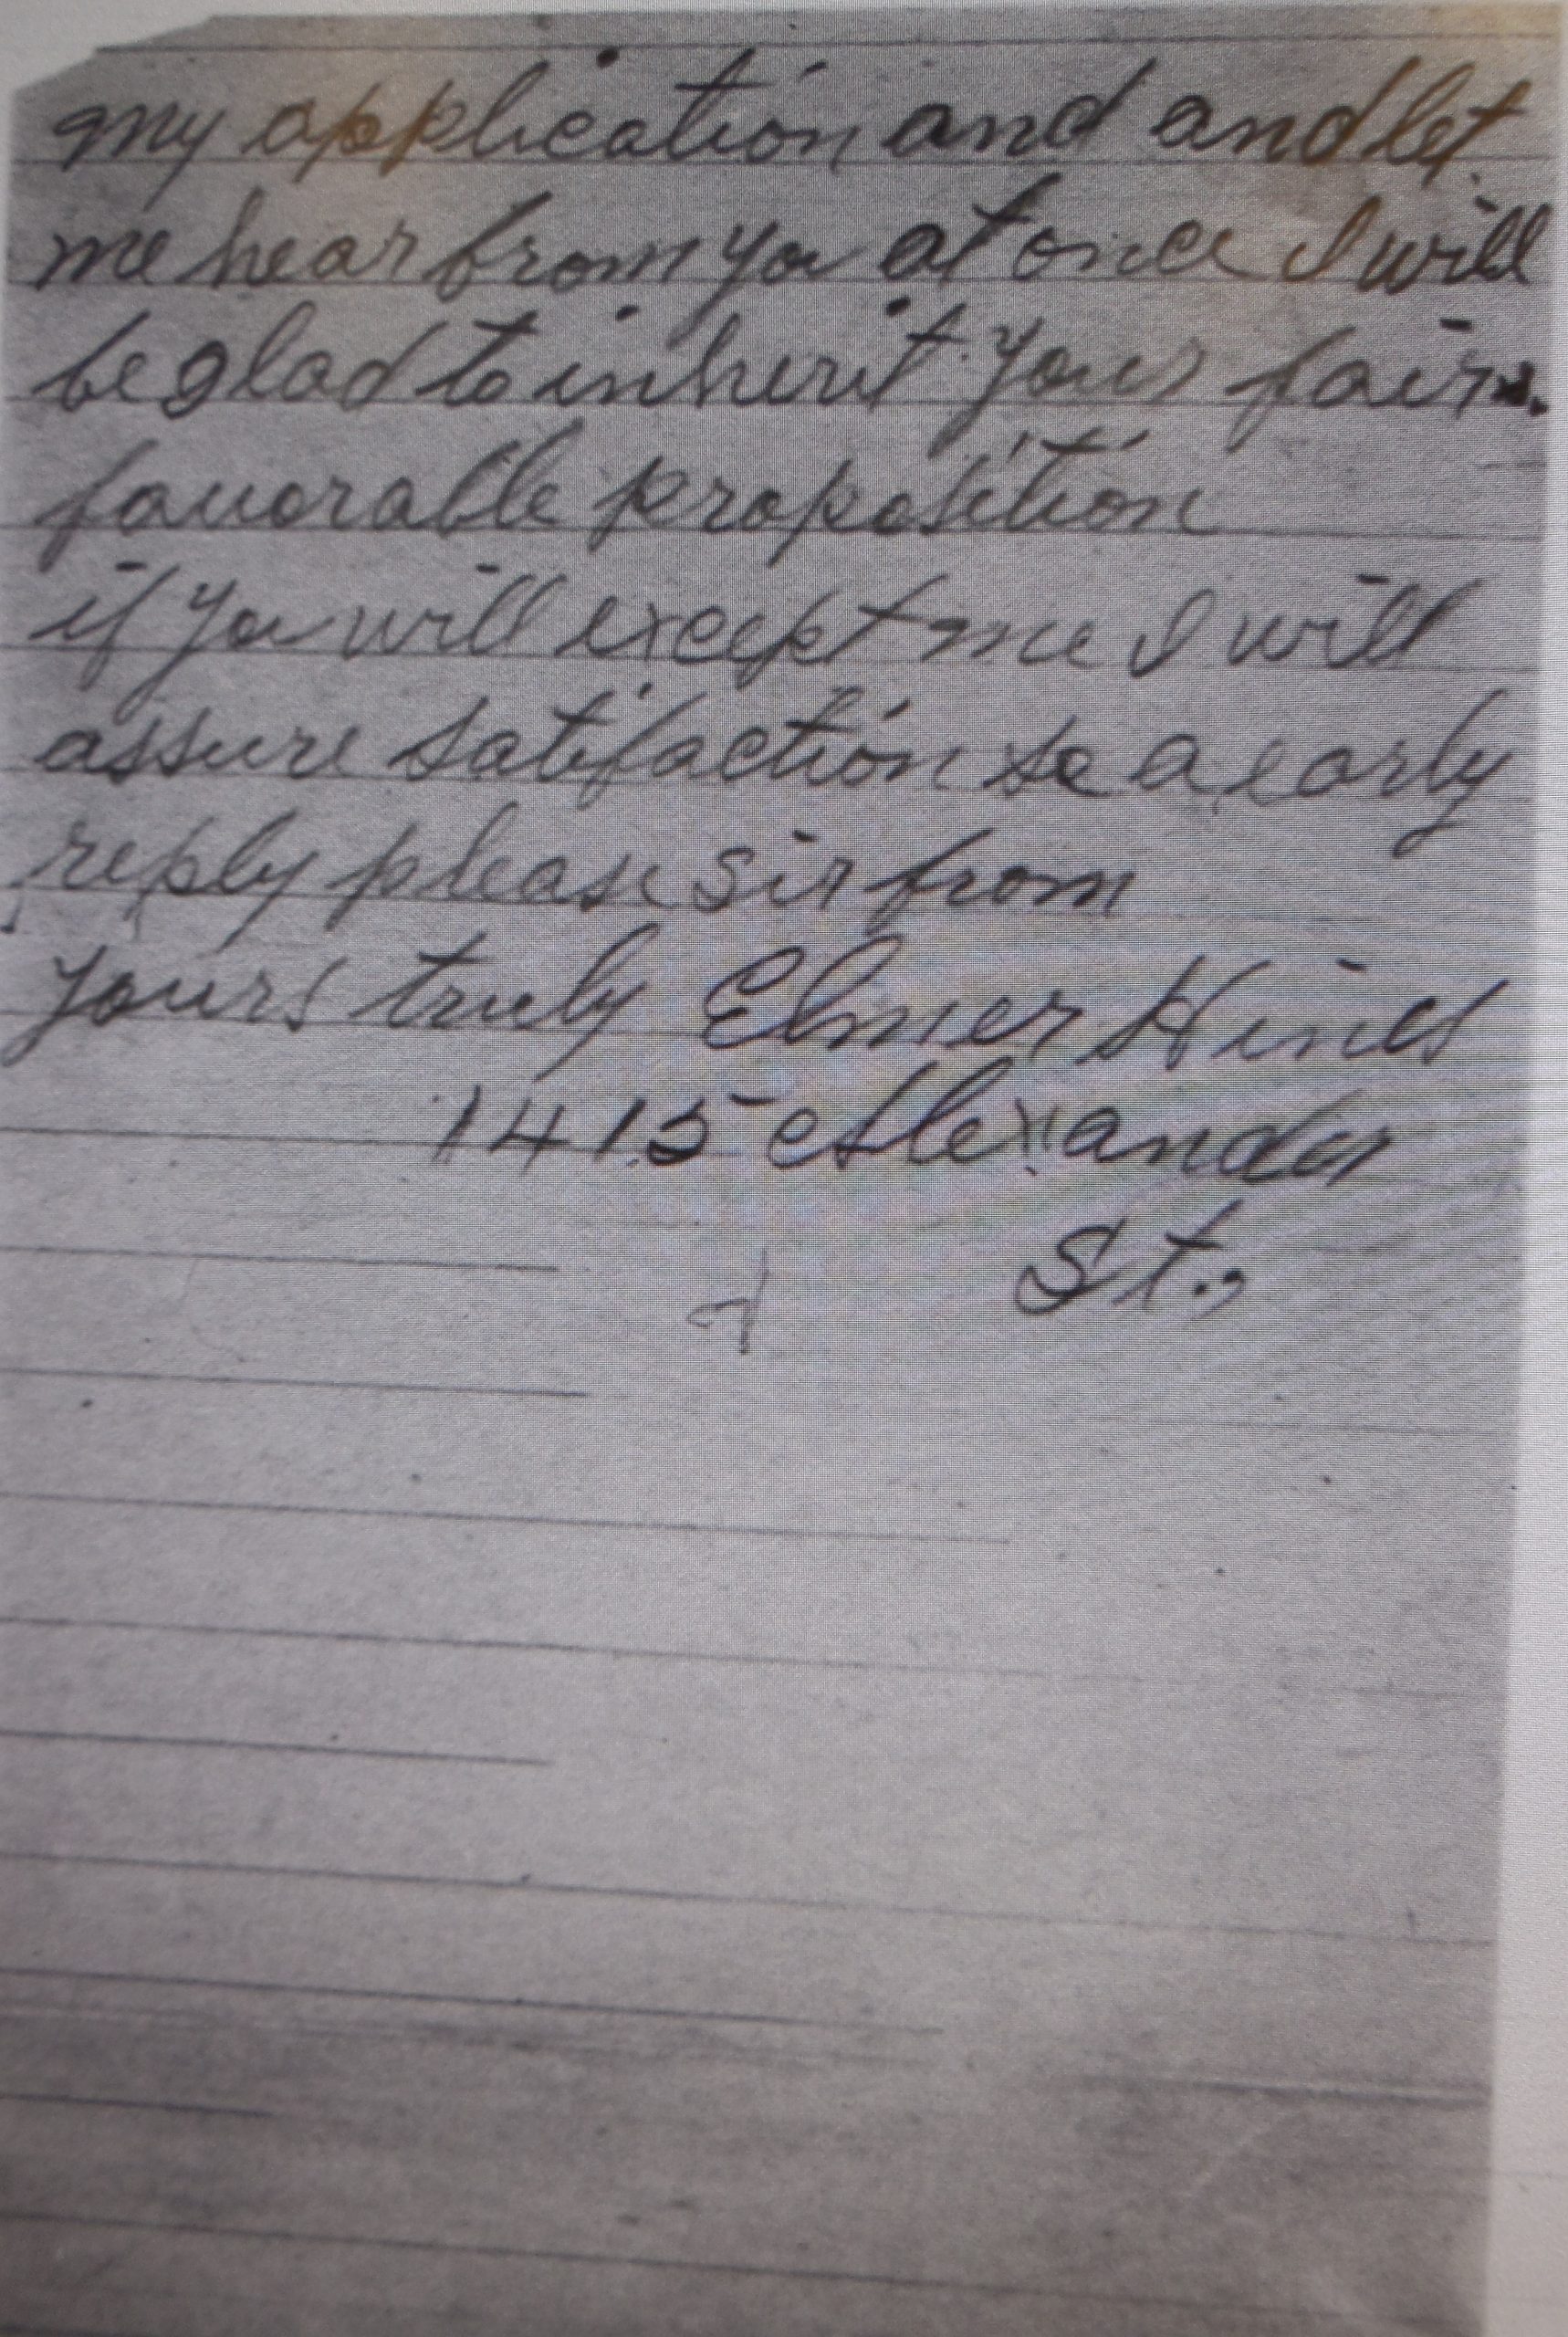 my application and and let
me hear from you at once I will
be glad to inherit your fair
favorable proposition
if you will except me I will
assure satifaction so a early
reply please sir from
yours truly Elmer Hines
1415 Alexander
St.,